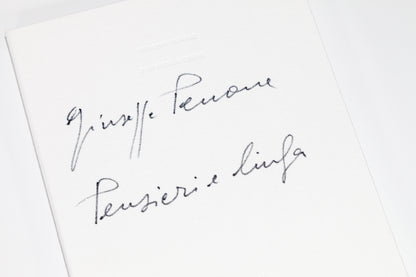 Giuseppe Penone
Pensieri e linfa